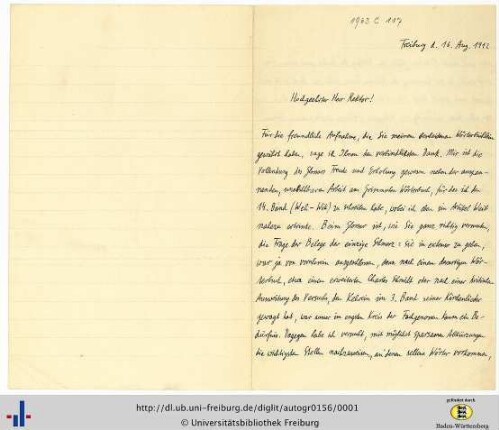 1963 C 117
Freiburg d. 16. Aug. 1912
Hochgeehrter Herr Rektor!
Für die freundliche Aufnahme, die Sie meinem
gewährt haben, sage ich Ihnen den verbindlichsten Dank. Mir ist die
Vollendung des Glossars Freude und Erholung gewesen neben der
Arbeit am Grimmschen Wörterbuch, für das ich den
14. Band (Weh - ) zu schreiben habe, wobei ich den Artikel Weit
Beim Glossar ist, wie Sie ganz richtig vermuten,
die Frage der Belege der einzige Schmerz: Sie in extenso zu geben,
war ja von vornherein ausgeschlossen, denn nach einem derartigen Wör-
terbuch, etwa einem erweiterten Charles Schmidt oder nach einer kritischen
Ausweitung des Versuchs, den Kehrein im 3. Band seiner Kirchenlieder
gewagt hat, war immer im engsten Kreis der Fachgenossen kaum ein Be-
dürfnis. Dagegen habe ich versucht, mit möglichst sparsamen Abkürzungen
die wichtigsten Stellen nachzuweisen, an denen seltene Wörter vorkommen,
http://dl.ub.uni-freiburg.de/diglit/autogr0156/0001
© Universitätsbibliothek Freiburg
gefördert durch
Baden-Württemberg